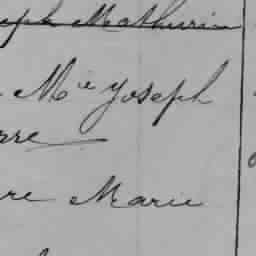 eph Mathurin
Mie Joseph
rre
re Marie